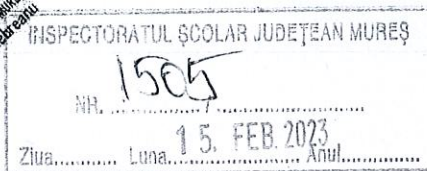 INSPECTORATUL ȘCOLAR JUDEȚEAN MUREȘ
NR. 1505
Ziua............ Luna 15. FEB. 2023 Anul............